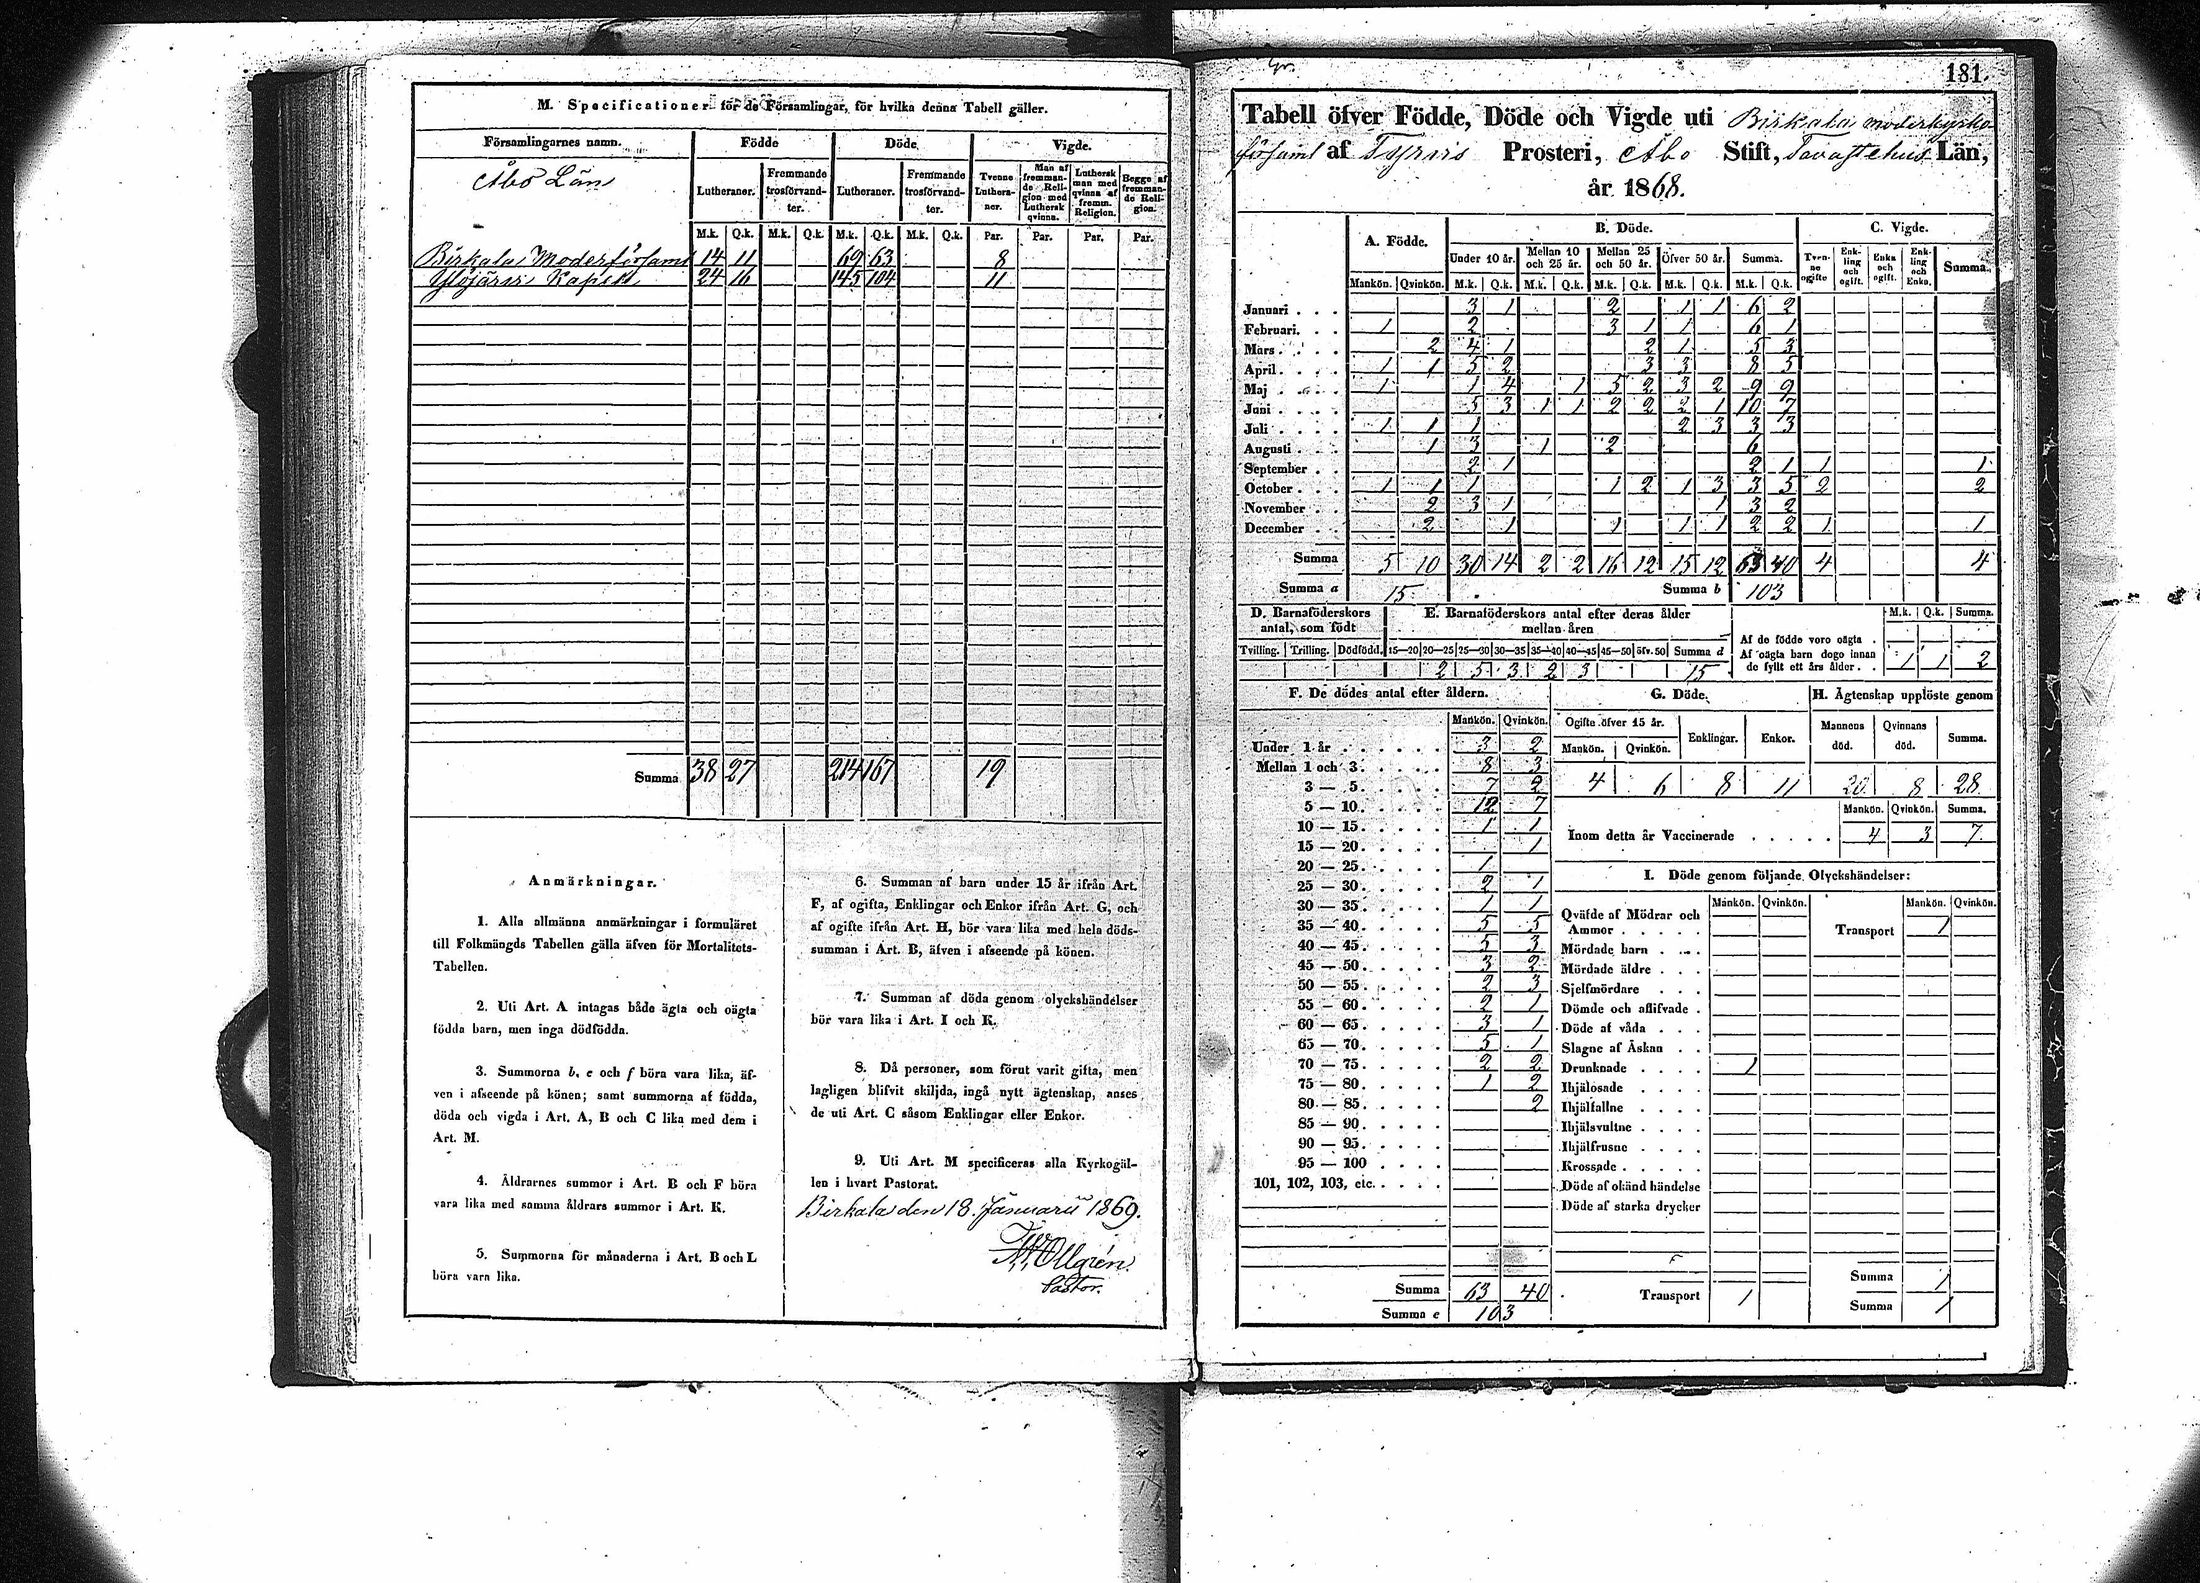 M. Specificationer för de Församlingar, för hvilka denna Tabell gäller.
Församlingarnes namn. Födde Döde. Vigde.
Åbo Län
Lutheraner. Fremmande trosförvandter. Lutheraner. Fremmande trosförvandter. Tvenne Lutheraner. Man af fremmande Religion med Luthersk qvinna. Luthersk man med qvinna af fremm. Religion. Begge af fremmande Religion.
M.k. Q.k. M.k. Q.k. M.k. Q.k. M.k. Q.k. Par. Par. Par. Par.
Birkala Moderförsaml 14 11 69 63 8
Ylöjärvi Kapell 24 16 145 104 11
Summa 38 27 214 167 19
Anmärkningar.
1. Alla allmänna anmärkningar i formuläret
till Folkmängds Tabellen gälla äfven för Mortalitets-
Tabellen.
2. Uti Art. A intagas både ägta och oägta
födda barn, men inga dödfödda.
3. Summorna b, e och f böra vara lika, äf-
ven i afseende på könen; samt summorna af födda,
döda och vigda i Art. A, B och C lika med dem i
Art. M.
4. Åldrarnes summor i Art. B och F böra
vara lika med samma åldrars summor i Art. K.
5. Summorna för månaderna i Art. B och L
böra vara lika.
6. Summan af barn under 15 år ifrån Art.
F, af ogifta, Enklingar och Enkor ifrån Art. G, och
af ogifte ifrån Art. H, bör vara lika med hela döds-
summan i Art. B, äfven i afseende på könen.
7. Summan af döda genom olyckshändelser
bör vara lika i Art. I och K.
8. Då personer, som förut varit gifta, men
lagligen blifvit skiljda, ingå nytt ägtenskap, anses
de uti Art. C såsom Enklingar eller Enkor.
9. Uti Art. M specificeras alla Kyrkogäl-
len i hvart Pastorat.
Birkala den 18. Januarii 1869.
Pastor.
181.
Tabell öfver Födde, Döde och Vigde uti Birkala moderkyrko
församl af Tyrvis Prosteri, Åbo Stift, Tavastehus Län,
år 1868.
A. Födde. B. Döde. C. Vigde.
Under 10 år. Mellan 10 och 25 år. Mellan 25 och 50 år. Öfver 50 år. Summa. Tvenne ogifte Enkling och ogift. Enka och ogift. Enkling och Enka. Summa.
Mankön. Qvinkön. M.k. Q.k. M.k. Q.k. M.k. Q.k. M.k. Q.k. M.k. Q.k.
Januari 3 1 2 1 1 6 2
Februari. 1 2 3 1 1 6 1
Mars 2 4 1 2 1 5 3
April 1 1 5 2 3 3 8 5
Maj 1 1 4 1 5 2 3 2 9 9
Juni 5 3 1 1 2 2 2 1 10 7
Juli 1 1 1 2 3 3 3
Augusti 1 3 1 2 6
September 2 1 2 1 1 1
October 1 1 1 1 2 1 3 3 5 2 2
November 2 3 1 1 3 2
December 2 1 1 1 1 2 2 1 1
Summa 5 10 30 14 2 2 16 12 15 12 63 40 4 4
Summa a 15 Summa b 103
D. Barnaföderskors antal, som födt
Tvilling. Trilling. Dödfödd.
E. Barnaföderskors antal efter deras ålder mellan åren
15—20 20—25 25—30 30—35 35—40 40—45 45—50 öfv. 50 Summa d
2 5 3 2 3 15
M.k. Q.k. Summa.
Af de födde voro oägta
Af oägta barn dogo innan
de fyllt ett års ålder 1 1 2
F. De dödes antal efter åldern.
Mankön. Qvinkön.
Under 1 år 3 2
Mellan 1 och 3 8 3
3 — 5 7 2
5 — 10 12 7
10 — 15 1 1
15 — 20 1
20 — 25 1
25 — 30 2 1
30 — 35 1 1
35 — 40 5 5
40 — 45 5 3
45 — 50 3 2
50 — 55 2 3
55 — 60 2 1
60 — 65 3 1
65 — 70 5 1
70 — 75 2 2
75 — 80 1 2
80 — 85 2
85 — 90
90 — 95
95 — 100
101, 102, 103, etc.
Summa 63 40
Summa e 103
G. Döde.
Ogifte öfver 15 år. Enklingar. Enkor.
Mankön. Qvinkön.
4 6 8 11
H. Ägtenskap upplöste genom
Mannens död. Qvinnans död. Summa.
20 8 28
Mankön. Qvinkön. Summa.
Inom detta år Vaccinerade 4 3 7.
I. Döde genom följande Olyckshändelser:
Mankön. Qvinkön. Mankön. Qvinkön.
Qväfde af Mödrar och
Ammor Transport 1
Mördade barn
Mördade äldre
Sjelfmördare
Dömde och aflifvade
Döde af våda
Slagne af Åskan
Drunknade 1
Ihjälosade
Ihjälfallne
Ihjälsvultne
Ihjälfrusne
Krossade
Döde af okänd händelse
Döde af starka drycker
Transport 1
Summa 1
Summa 1